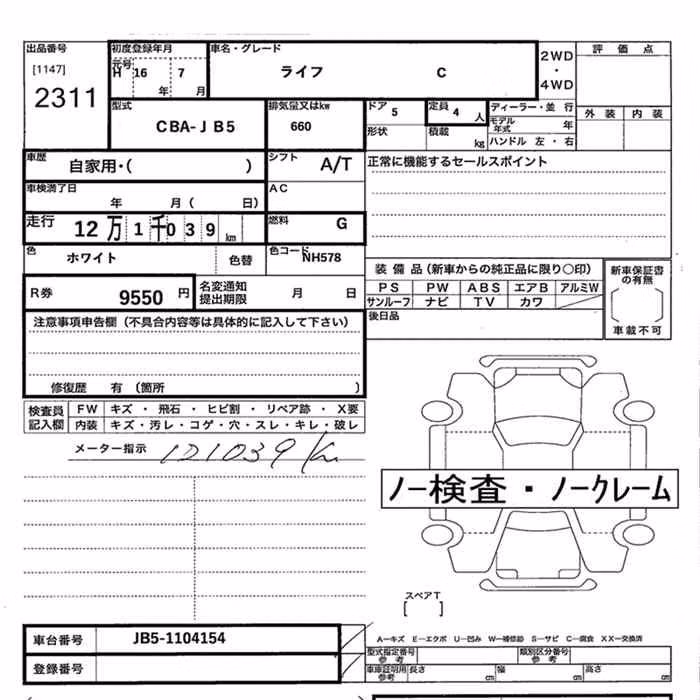 出品番号 初度登録年月 車名・グレード 2WD・4WD 評価点
[1147] 元号 H 16 7 ライフ C
2311 年 月
型式 排気量又はkw ドア 5 定員 4 人 ディーラー・並 行 外装 内装
CBA-JB5 660 形状 積載 kg モデル年式 年
ハンドル 左・右
車歴 シフト 正常に機能するセールスポイント
自家用・( ) A/T
車検満了日 AC
年 月( 日)
走行 12万1千039km 燃料 G
色 ホワイト 色替 色コード NH578
装備品(新車からの純正品に限り○印) 新車保証書の有無
R券 9550円 名変通知提出期限 月 日 PS PW ABS エアB アルミW
サンルーフ ナビ TV カワ
注意事項申告欄(不具合内容等は具体的に記入して下さい) 後日品 車載不可
修復歴 有(箇所 )
検査員記入欄 FW キズ・飛石・ヒビ割・リペア跡・X要
内装 キズ・汚レ・コゲ・穴・スレ・キレ・破レ
メーター指示 121039Km
ノー検査・ノークレーム
スペアT
[ ]
車台番号 JB5-1104154 A−キズ E−エクボ U−凹み W−補修跡 S−サビ C−腐食 XX−交換済
型式指定番号 参考 類別区分番号 参考
登録番号 車庫証明用参考 長さ cm 幅 cm 高さ cm